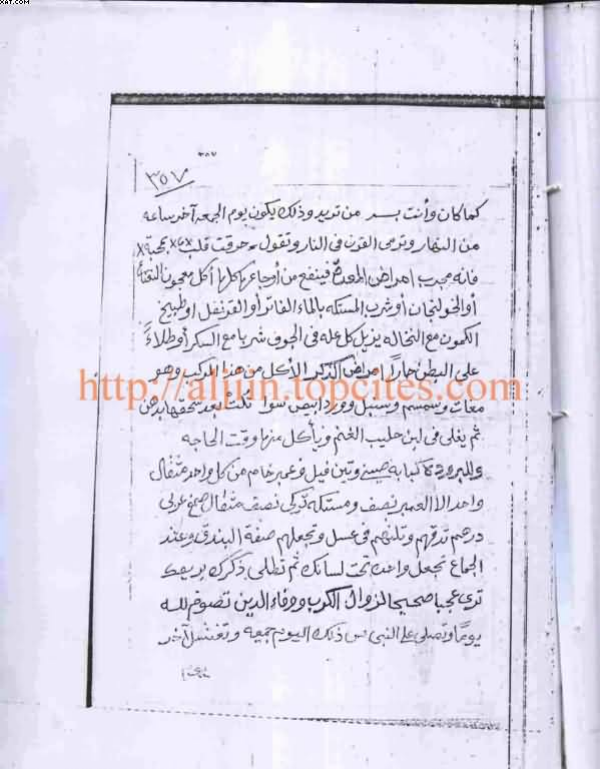 XAT.COM
٣٥٧
كما كان وأنت بسر من تريد وذلك يكون يوم الجمعه آخر ساعه
من النهار وترمى القرن فى النار وتقول حرقت قلب بمحبة
فانه مجرب امراض المعدة فينفع من أوجاعها كلها أكل معجون
أو الخولنجان أو شرب المستكه بالماء الفاتر أو القرنفل او طبيخ
الكمون مع النخاله يزيل كل عله فى الجوف شربا مع السكر أو طلاءً
على البطن حاراً امراض الذكر الأكل من هذا المركب وهو
http://aljijn.topcites.com
وسمسم وسنبل وورد ابيض سوا بعد سحقها بدهن
ثم يغلى فى لبن حليب الغنم ويأكل منها وقت الحاجه
وللبرودة كبابه صينى وتين فيل وعمبر خام من كل واحد مثقال
واحد الا العمبر نصف ومستكه تركى نصف مثقال صمغ عربى
درهم تدقهم وتلتهم فى عسل وتجعلهم صفة البندق وعند
الجماع تجعل واحده تحت لسانك ثم تطلى ذكرك بريقك
ترى عجبا صحيح لزوال الكرب ووفاء الدين تصوم لله
يوماً وتصلى على النبى ذلك اليوم جمعه وتغتسل آخر